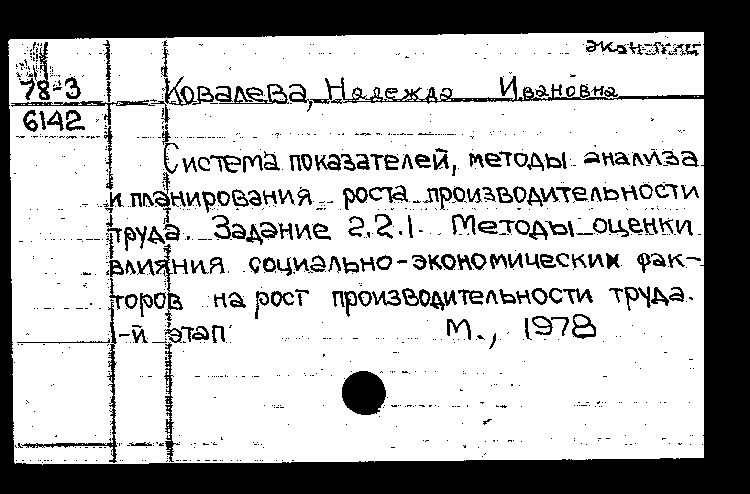 78-3 Ковалева, Надежда Ивановна
6142
Система показателей, методы анализа
и планирования роста производительности
труда. Задание 2.2.1. Методы оценки
влияния социально-экономических фак-
торов на рост производительности труда.
1-й этап М., 1978